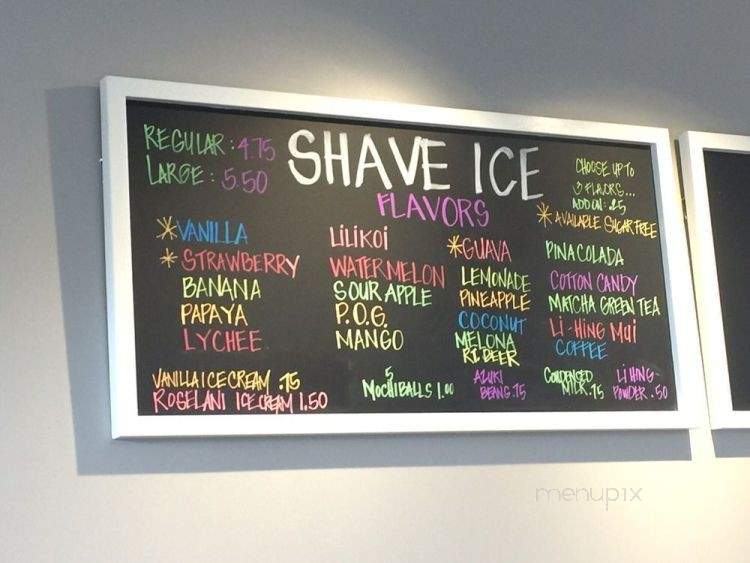 REGULAR: 4.75
LARGE: 5.50
SHAVE ICE
FLAVORS
CHOOSE UP TO
3 FLAVORS...
ADD ON: .25
* AVAILABLE SUGAR FREE
*VANILLA
* STRAWBERRY
BANANA
PAPAYA
LYCHEE
LILIKOI
WATERMELON
SOUR APPLE
P.O.G.
MANGO
*GUAVA
LEMONADE
PINEAPPLE
COCONUT
MELONA
RT. BEER
PINA COLADA
COTTON CANDY
MATCHA GREEN TEA
LI-HING MUI
COFFEE
VANILLA ICE CREAM .75
ROSELANI ICE CREAM 1.50
5
MOCHI BALLS 1.00
AZUKI
BEANS .75
CONDENSED
MILK .75
LI HING-
POWDER .50
menupix